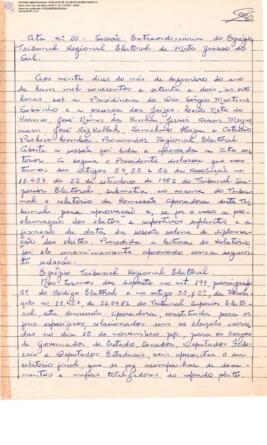 Ata nº 20. Sessão Extraordinária do Egrégio
Tribunal Regional Eleitoral de Mato Grosso do
Sul.
Aos vinte dias do mês de dezembro do ano
de hum mil novecentos e oitenta e dois, às
horas, sob a Presidência do Des. Sérgio Martins
Sobrinho e a presença dos juízes:
do Carmo, José Nunes da Cunha,
José Rizkallah,
Pacheco Procurador Regional Eleitoral
Aberta a sessão foi lida e aprovada a ata an
terior. A seguir o Presidente declarou que nos
termos dos artigos 54, 55 e 56 da Resolução nº
11.457 de 22 de setembro de 1982 do Tribunal Su
perior Eleitoral, submetia ao exame do Tribunal
o relatório da Comissão Apuradora deste Tri
bunal para aprovação e, se for o caso a pro
clamação dos eleitos e respectivos suplentes e a
fixação da data da sessão solene de diploma
ção dos eleitos. Procedida a leitura do relatório
foi ele unanimemente aprovado com a seguinte
redação:
Egrégio Tribunal Regional Eleitoral
Nos termos dos disposto no art. 199 parágrafo
5º do Código Eleitoral e no artigo 53, da Resolu
ção nº 11.457 de 22.09.82 do Tribunal Superior Eleito
ral, esta Comissão Apuradora, constituída para os
fins específicos relacionados com as eleições ocorri
das no dia 15 de novembro pp., para os cargos
de Governador de Estado, Senador, Deputados Fede
rais e Deputados Estaduais, vem apresentar o seu
relatório final, que se faz acompanhar de docu
mentos e mapas totalizadores do referido pleito.